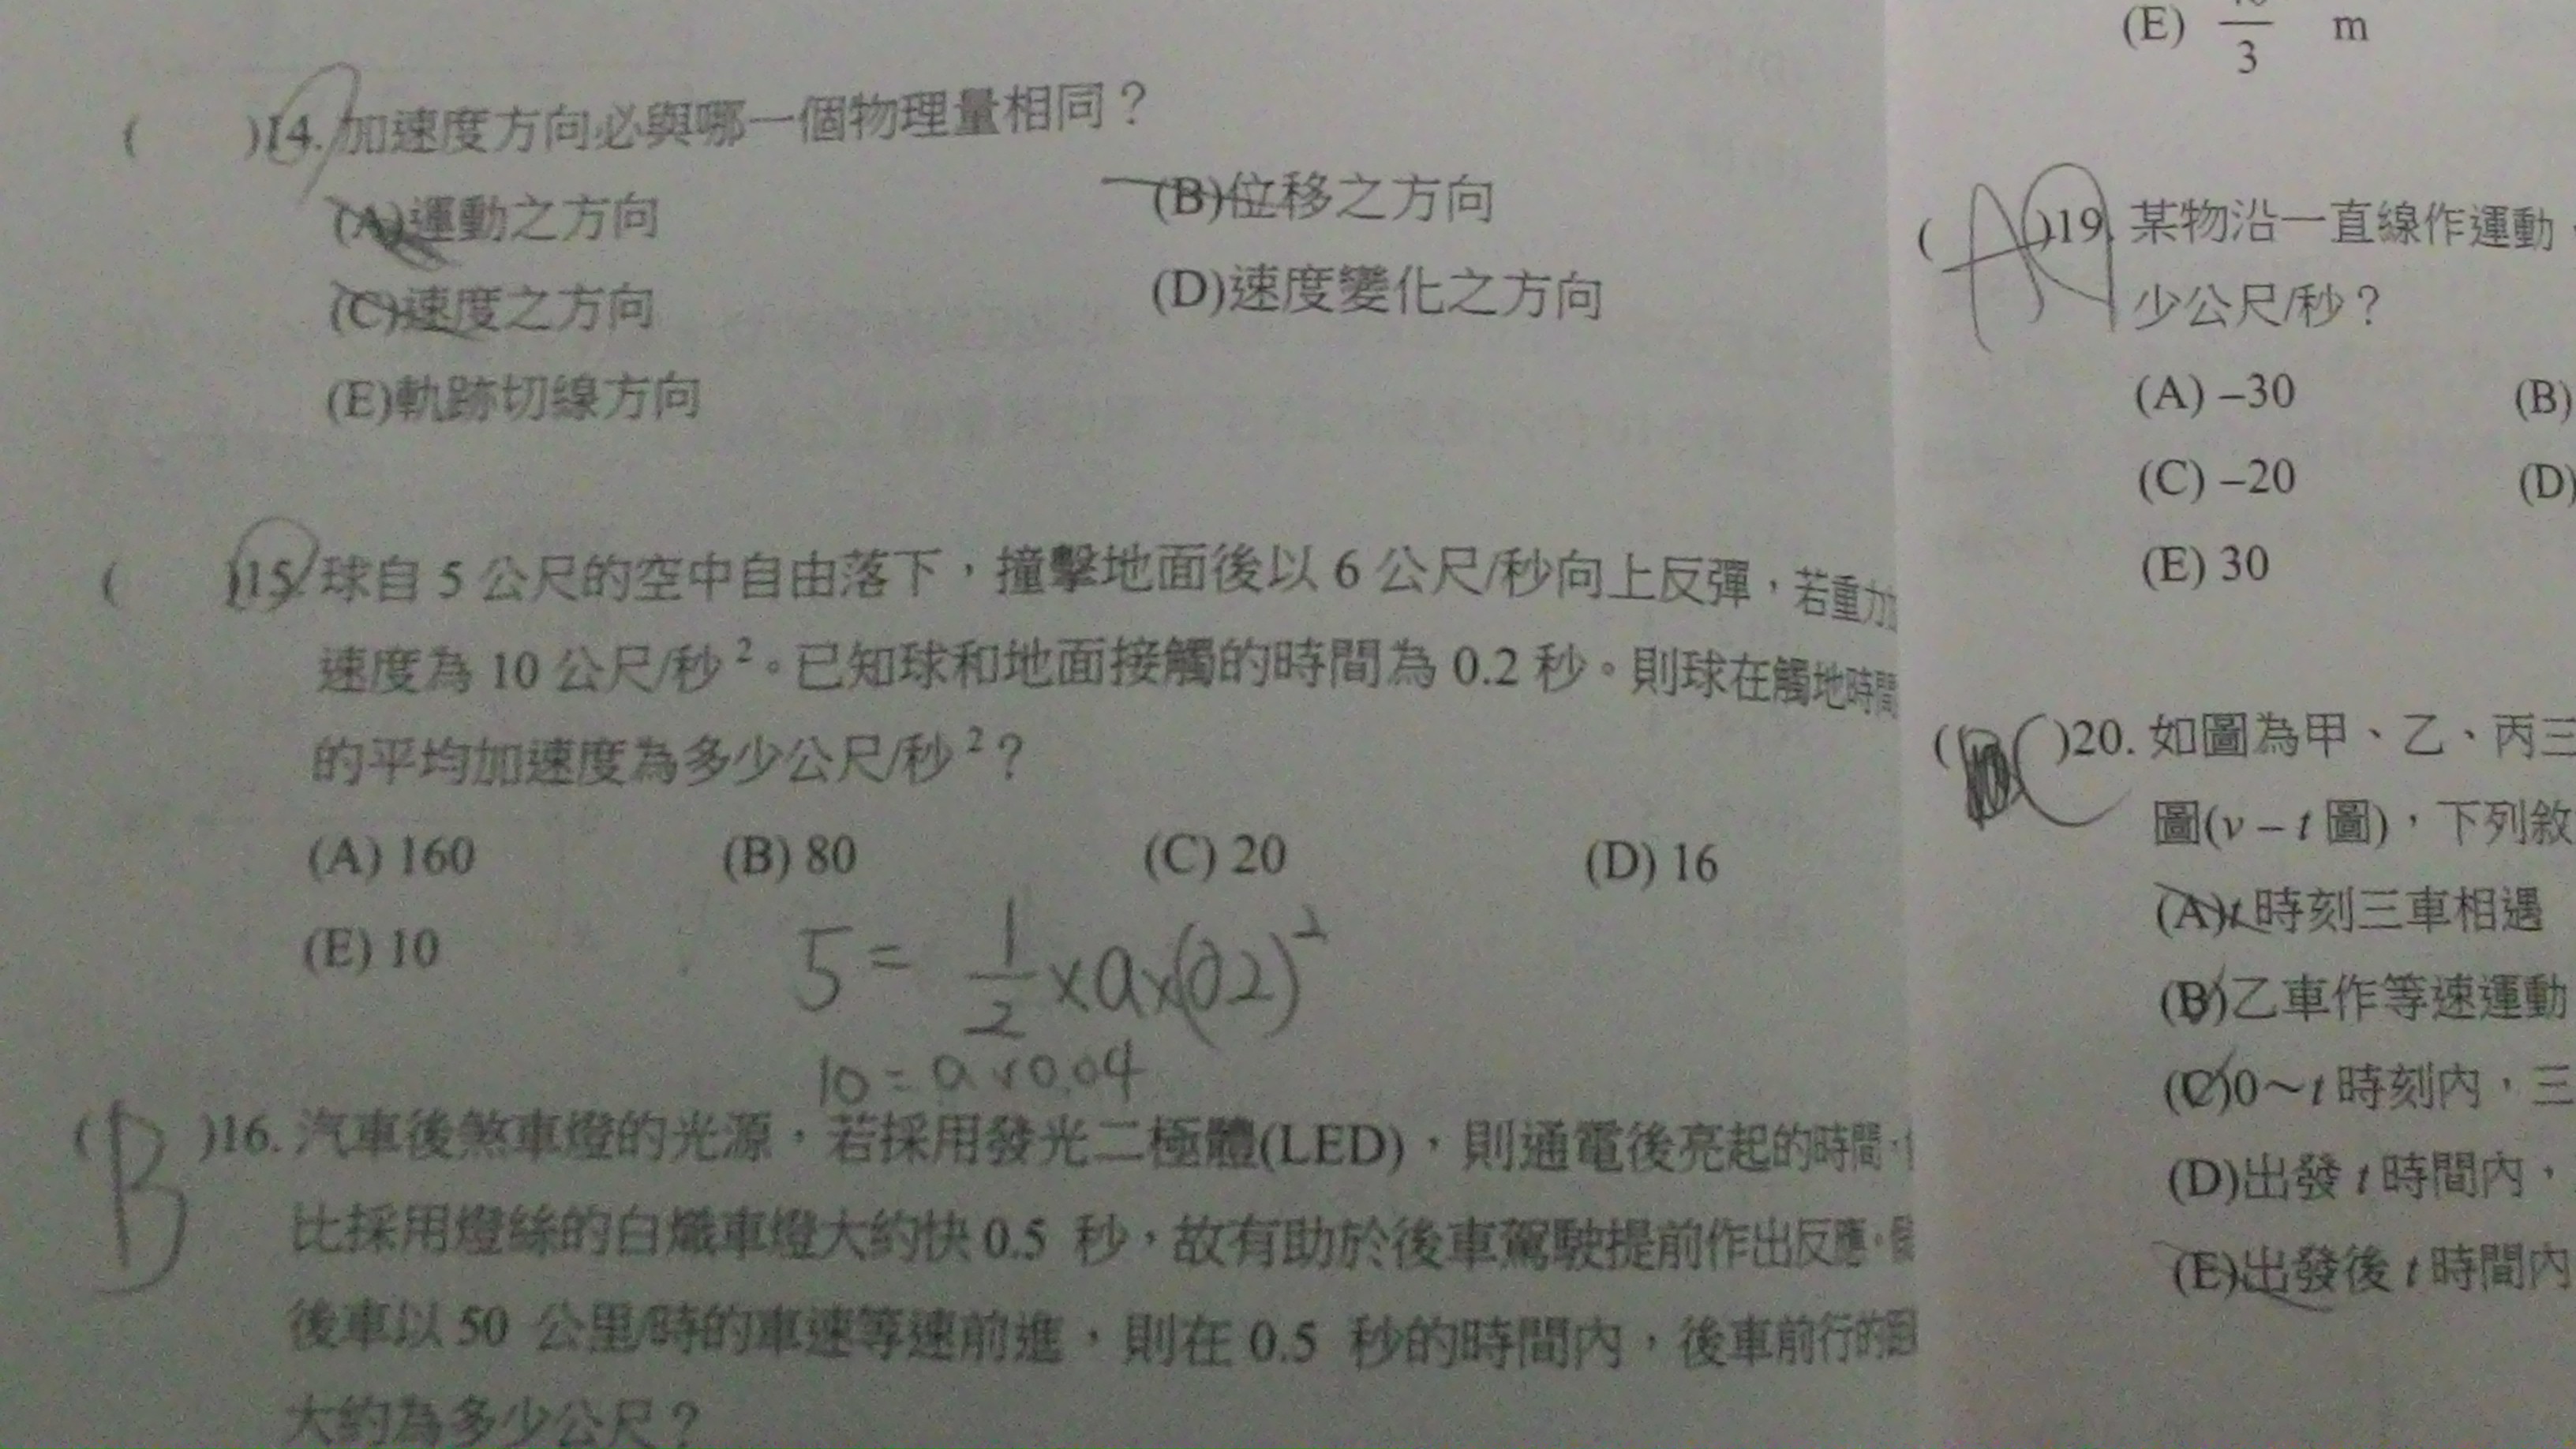 ( )14. 加速度方向必與哪一個物理量相同？
(A)運動之方向 (B)位移之方向
(C)速度之方向 (D)速度變化之方向
(E)軌跡切線方向
( )15. 球自 5 公尺的空中自由落下，撞擊地面後以 6 公尺/秒向上反彈，若重力加
速度為 10 公尺/秒²。已知球和地面接觸的時間為 0.2 秒。則球在觸地時間
的平均加速度為多少公尺/秒²？
(A) 160 (B) 80 (C) 20 (D) 16
(E) 10
5 = 1/2 × a × (0.2)²
10 = a × 0.04
( B )16. 汽車後煞車燈的光源，若採用發光二極體(LED)，則通電後亮起的時間，
比採用燈絲的白熾車燈大約快 0.5 秒，故有助於後車駕駛提前作出反應。
後車以 50 公里/時的車速等速前進，則在 0.5 秒的時間內，後車前行的距
大約為多少公尺？
(E) /3 m
( A )19. 某物沿一直線作運動，
少公尺/秒？
(A) –30 (B)
(C) –20 (D)
(E) 30
( C )20. 如圖為甲、乙、丙三
圖(v – t 圖)，下列敘
(A) t 時刻三車相遇
(B)乙車作等速運動
(C)0～t 時刻內，三
(D)出發 t 時間內，
(E)出發後 t 時間內